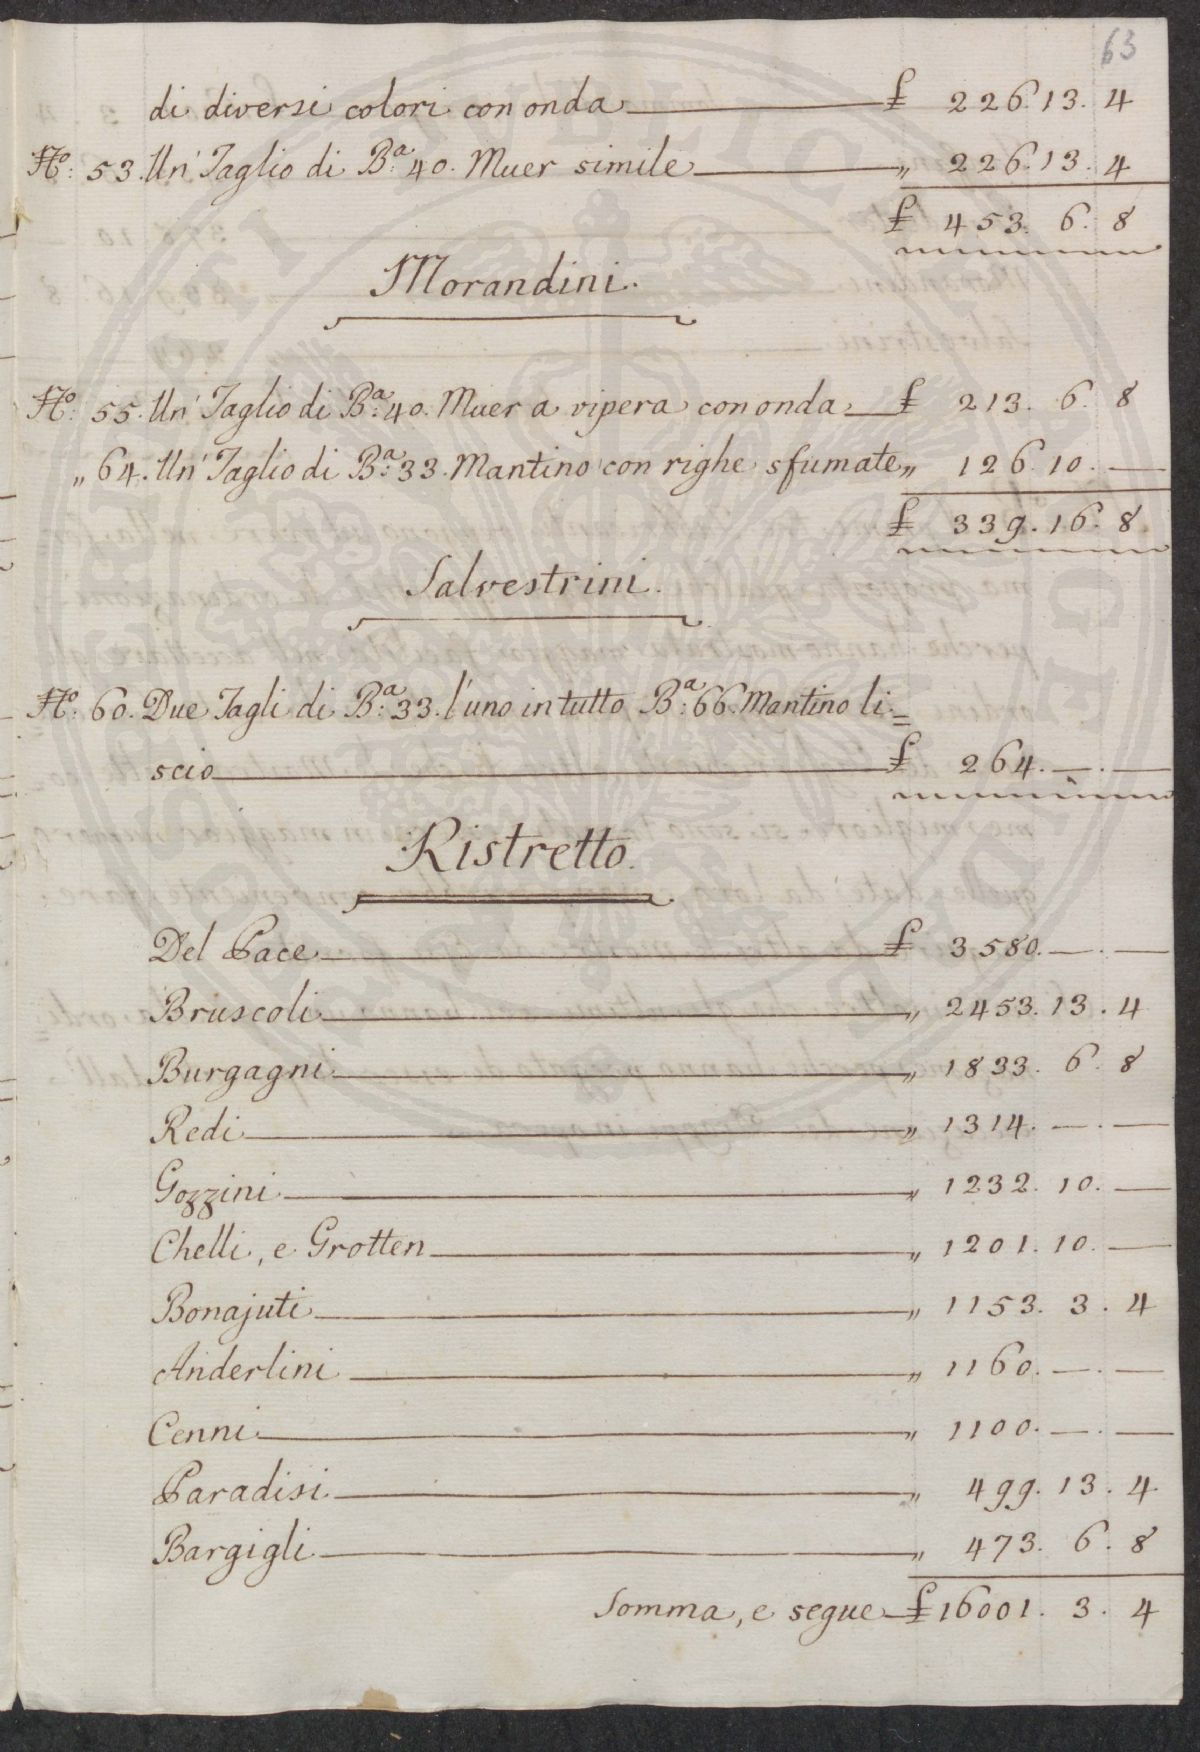 63
di diversi colori con onda £ 226. 13. 4
No: 53. Un' Taglio di Ba: 40. Muer simile „ 226. 13. 4
£ 453. 6. 8
Morandini.
No: 55. Un' Taglio di Ba: 40. Muer a vipera con onda £ 213. 6. 8
„ 64. Un' Taglio di Ba: 33. Mantino con righe sfumate „ 126. 10. —
£ 339. 16. 8
Salvestrini.
No: 60. Due Tagli di Ba: 33. l'uno in tutto Ba: 66. Mantino li=
scio £ 264. —. —
Ristretto.
Del Pace £ 3580. —. —
Bruscoli „ 2453. 13. 4
Burgagni „ 1833. 6. 8
Redi „ 1314. —. —
Gozzini „ 1232. 10. —
Chelli, e Grotten „ 1201. 10. —
Bonajuti „ 1153. 3. 4
Anderlini „ 1160. —. —
Cenni „ 1100. —. —
Paradisi „ 499. 13. 4
Bargigli „ 473. 6. 8
Somma, e segue £ 16001. 3. 4